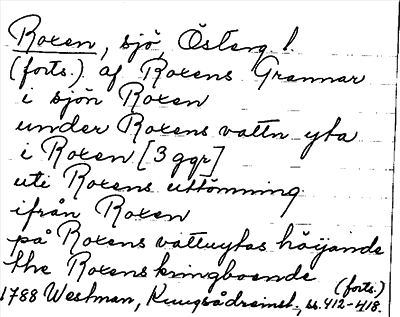 Roxen, sjö, Österg l.
(forts.) af Roxens Grannar
i sjön Roxen
under Roxens vattn yta
i Roxen [3 ggr]
uti Roxens uttömning
ifrån Roxen
på Roxens vattuytas höijande
the Roxens kringboende
(forts.)
1788 Westman, ss. 412-418.